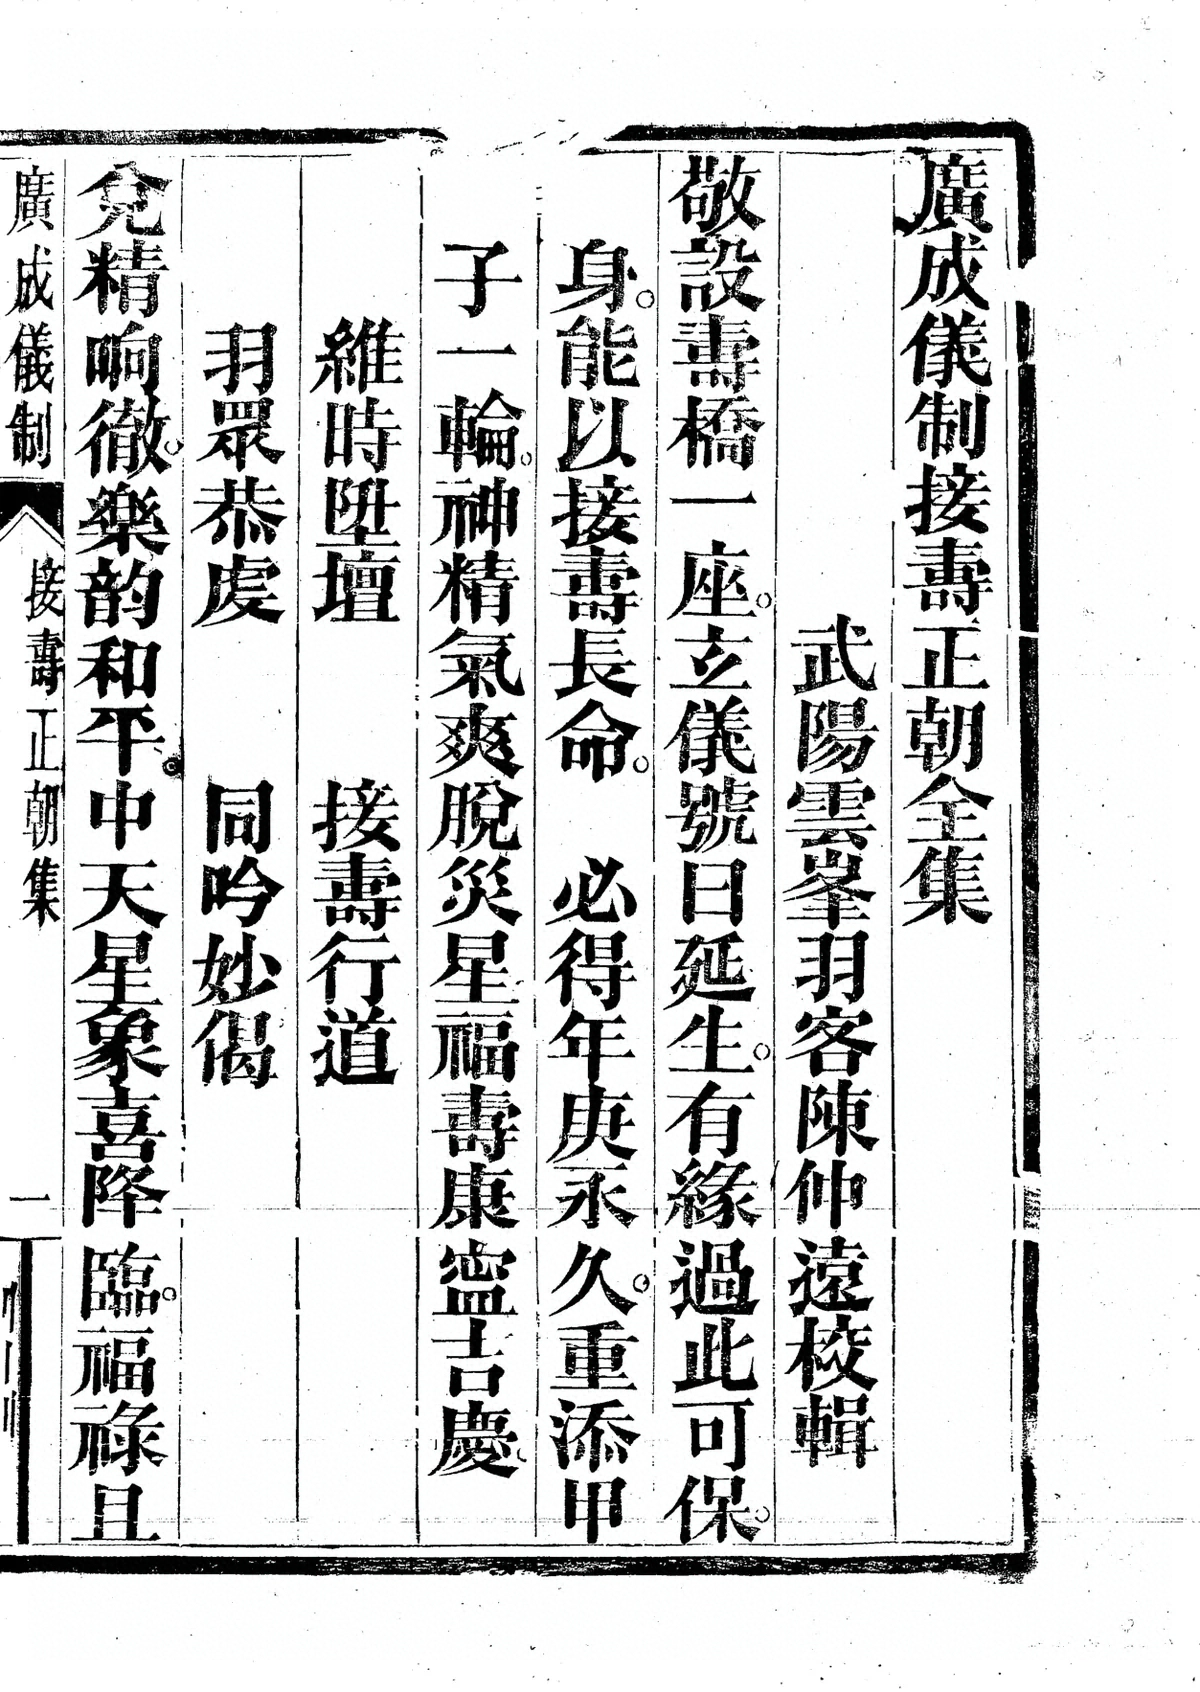 廣成儀制接壽正朝全集
武陽雲峯羽客陳仲遠校輯
敬設壽橋一座。玄儀號曰延生。有緣過此可保。
身。能以接壽長命。必得年庚永久。重添甲
子一輪。神精氣爽脫災星福壽康寧吉慶。
維時陞壇　接壽行道
羽眾恭虔　同吟妙偈
兌精响徹。樂韵和平。中天星象喜降臨。福祿且
廣成儀制　接壽正朝集　一